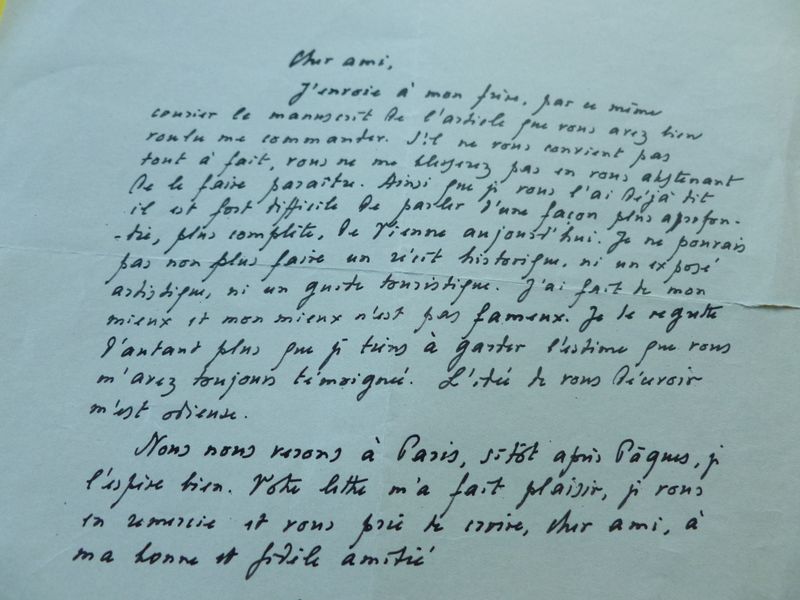 Cher ami,
J'envoie à mon frère, par ce même
courier le manuscrit de l'article que vous avez bien
voulu me commander. S'il ne vous convient pas
tout à fait, vous ne me blesserez pas en vous abstenant
de le faire paraître. Ainsi que je vous l'ai déjà dit
il est fort difficile de parler d'une façon plus aprofon-
-die, plus complète, de Vienne aujourd'hui. Je ne pouvais
pas non plus faire un récit historique, ni un exposé
artistique, ni un guide touristique. J'ai fait de mon
mieux et mon mieux n'est pas fameux. Je le regrette
d'autant plus que je tiens à garder l'estime que vous
m'avez toujours témoignée. L'idée de vous décevoir
m'est odieuse.
Nous nous verons à Paris, sitôt après Pâques, je
l'espère bien. Votre lettre m'a fait plaisir, je vous
en remercie et vous prie de croire, cher ami, à
ma bonne et fidèle amitié